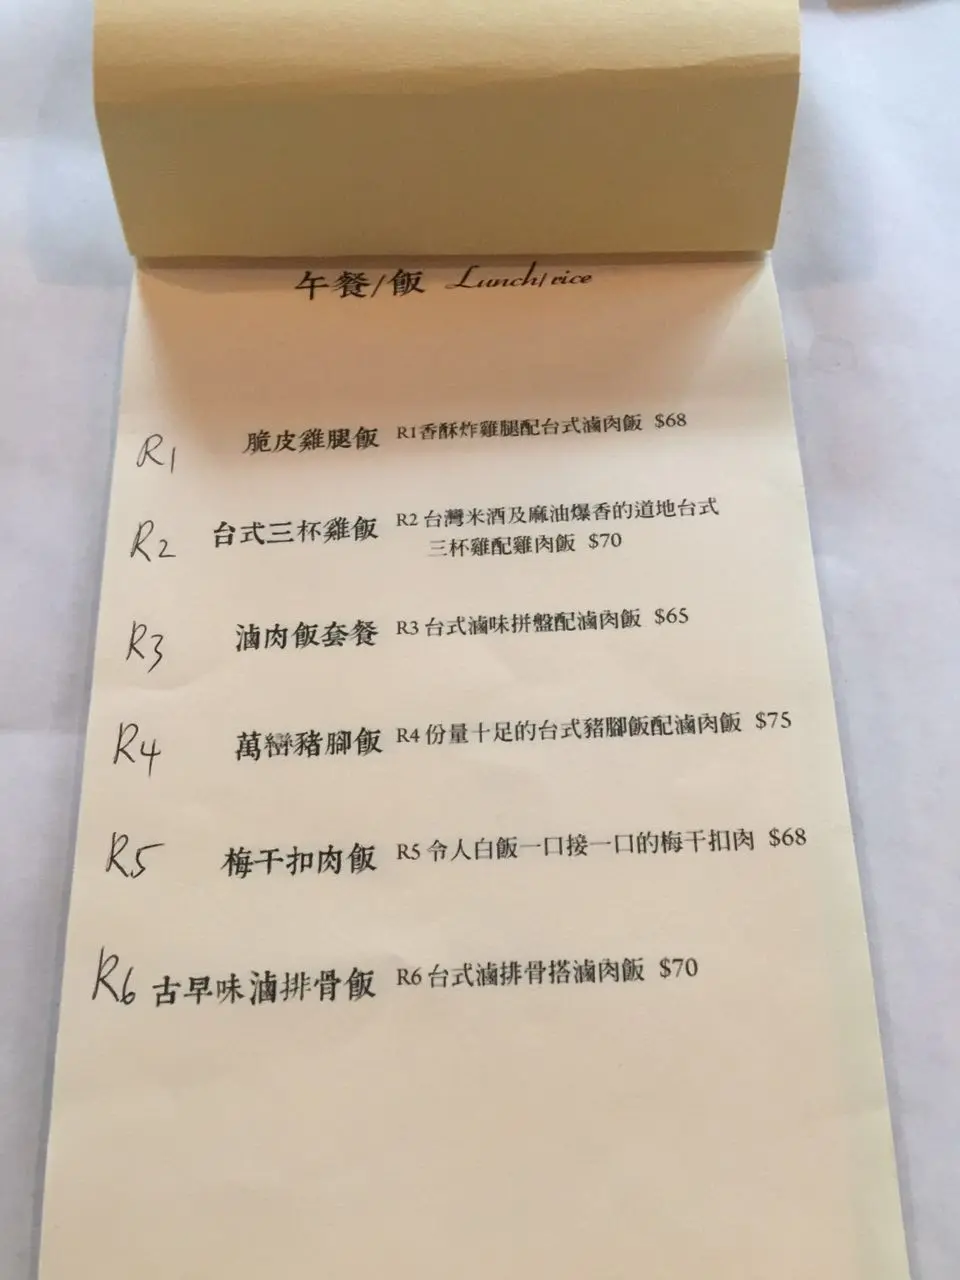 午餐/飯 Lunch/rice
R1 脆皮雞腿飯 R1香酥炸雞腿配台式滷肉飯 $68
R2 台式三杯雞飯 R2 台灣米酒及麻油爆香的道地台式
三杯雞配雞肉飯 $70
R3 滷肉飯套餐 R3 台式滷味拼盤配滷肉飯 $65
R4 萬巒豬腳飯 R4 份量十足的台式豬腳飯配滷肉飯 $75
R5 梅干扣肉飯 R5 令人白飯一口接一口的梅干扣肉 $68
R6 古早味滷排骨飯 R6 台式滷排骨搭滷肉飯 $70